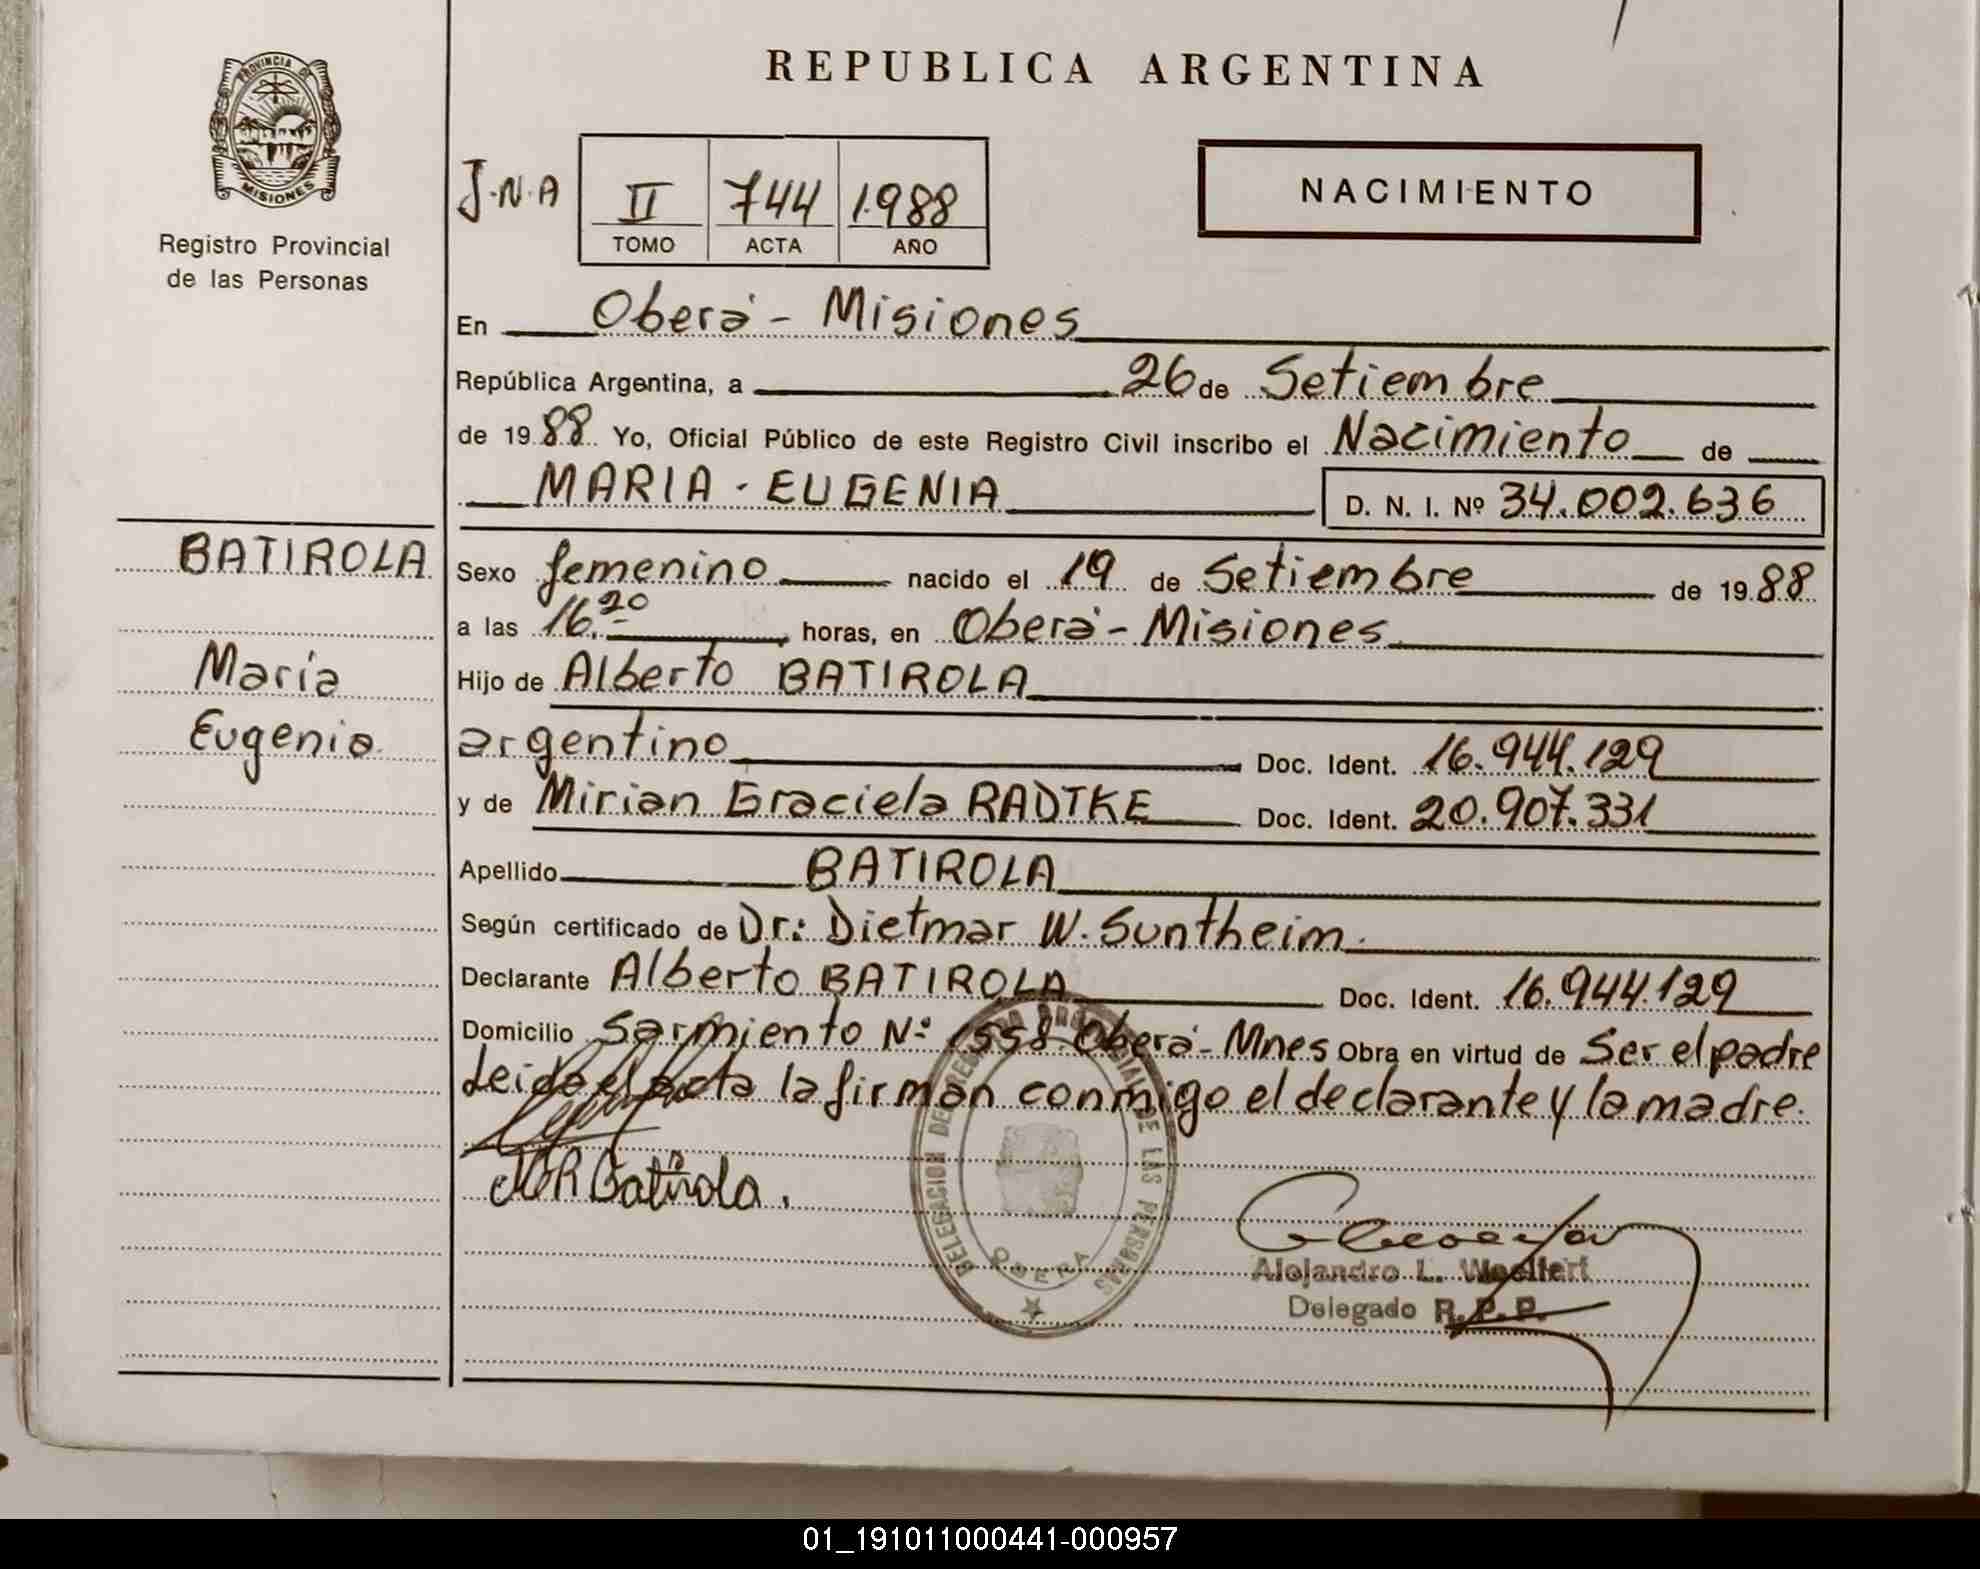 PROVINCIA DE
MISIONES
Registro Provincial
de las Personas
REPUBLICA ARGENTINA
J.N.A
II 744 1.988
TOMO ACTA AÑO
NACIMIENTO
En Oberá - Misiones
República Argentina, a 26 de Setiembre
de 1988 Yo, Oficial Público de este Registro Civil inscribo el Nacimiento de
MARIA - EUGENIA D. N. I. Nº 34.002.636
BATIROLA
María
Eugenia
Sexo femenino nacido el 19 de Setiembre de 1988
a las 16.20 horas, en Oberá - Misiones
Hijo de Alberto BATIROLA
argentino Doc. Ident. 16.944.129
y de Mirian Graciela RADTKE Doc. Ident. 20.907.331
Apellido BATIROLA
Según certificado de Dr.: Dietmar W. Suntheim.
Declarante Alberto BATIROLA Doc. Ident. 16.944.129
Domicilio Sarmiento Nº 1558 Oberá - Mnes Obra en virtud de Ser el padre
Leida el acta la firman conmigo el declarante y la madre.
Batirola.
DELEGACION DE PROVINCIAL DE LAS PERSONAS
OBERA
Alejandro L.
Delegado R.P.P.
01_191011000441-000957